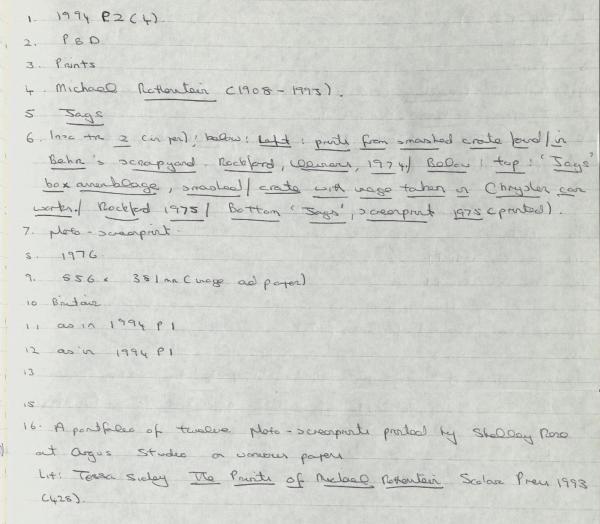 1. 1994 P2(4)
2. PBD
3. Prints
4. Michael Rothenstein (1908-1993).
5 Jags
6. Insc tr 2 (in pen); below: Left: prints from smashed crate found/in
Behr's scrapyard. Rockford, Illinois, 1974/ Below: top: 'Jags'
box assemblage, smashed/ crate with image taken in Chrysler car
works./ Rockford 1975/ Bottom 'Jags', screenprint 1975 (printed).
7. Photo-screenprint.
8. 1976
9. 556 x 381mm (image and paper)
10 Britain
11 as in 1994 P1
12 as in 1994 P1
13
15
16. A portfolio of twelve photo-screenprints printed by Shelley Rose
at Argus Studio on various papers
Lit: Tessa Sidey The Prints of Michael Rothenstein Scolar Press 1993
(428).